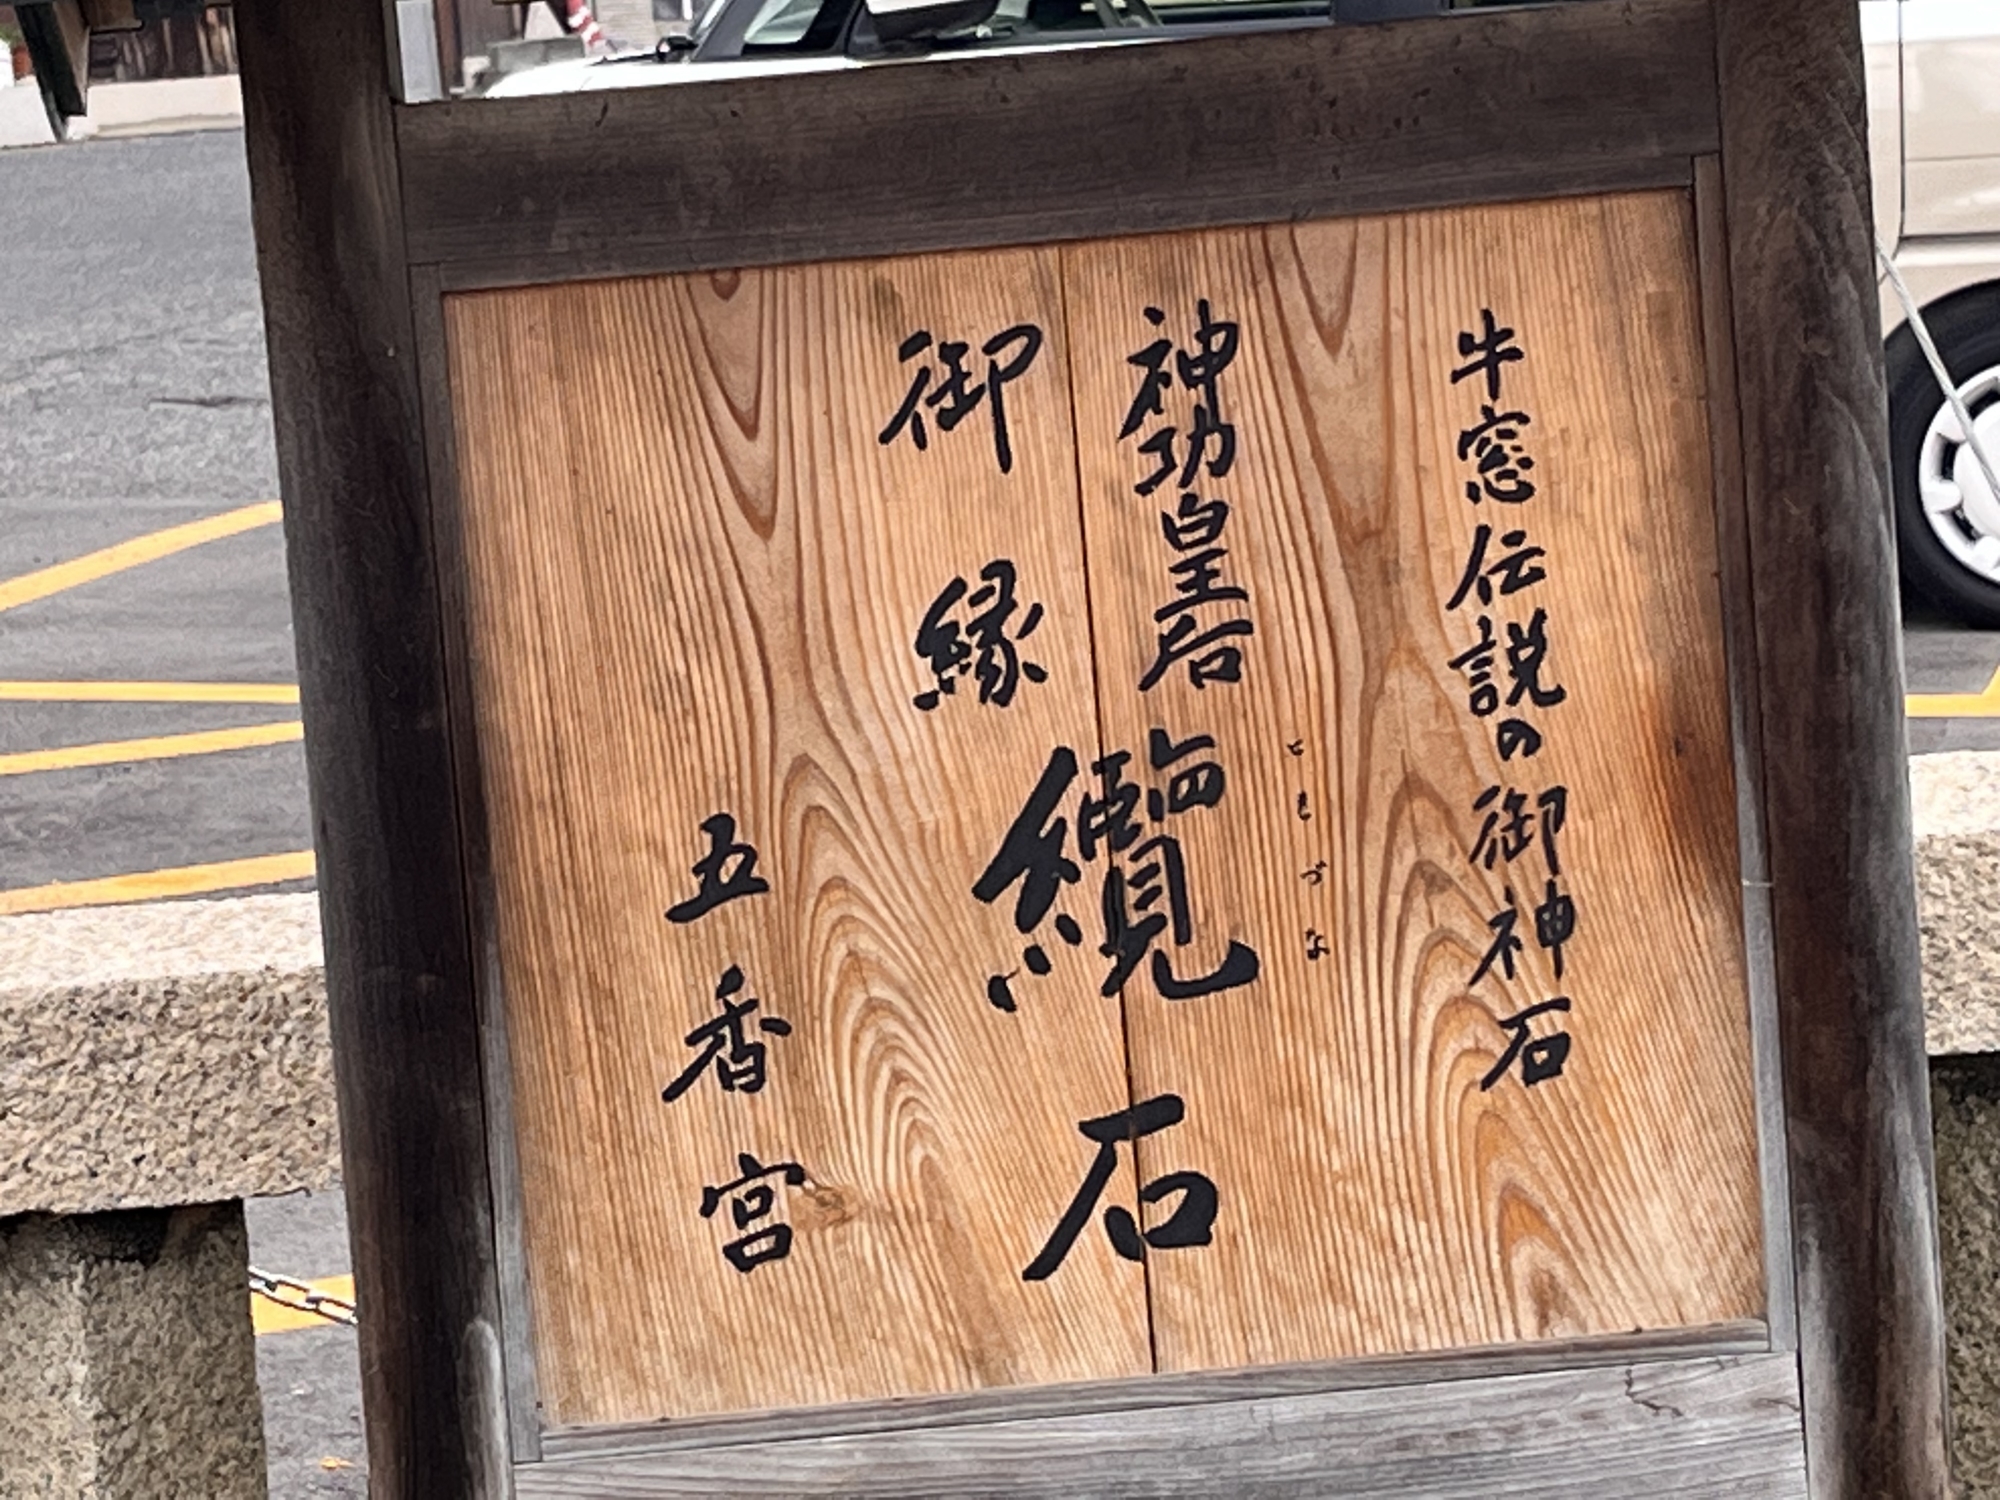 牛窓伝説の御神石
神功皇后
御縁
纜石
ともづな
五香宮